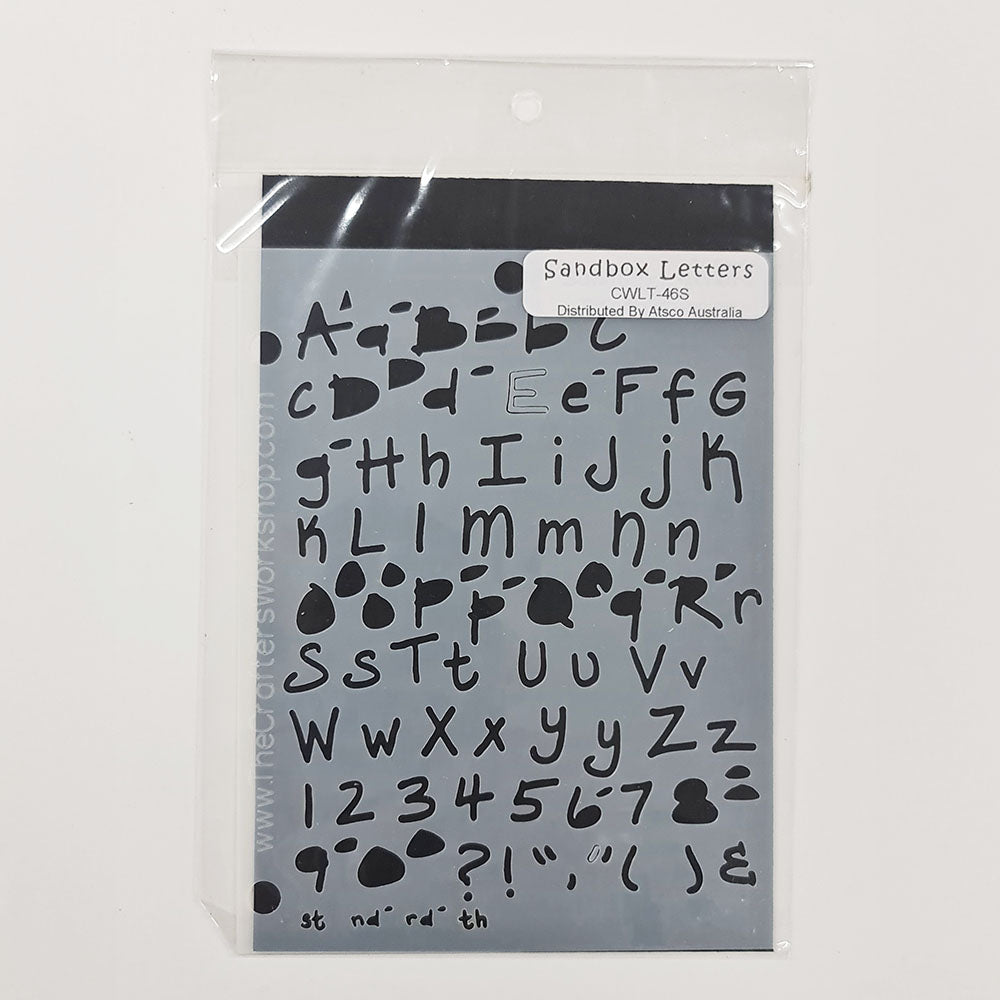 Sandbox Letters
CWLT-46S
Distributed By Atsco Australia
A a B b C
c D d E e F f G
g H h I i J j K
k L l M m N n
O o P p Q q R r
S s T t U u V v
W w X x Y y Z z
1 2 3 4 5 6 7 8
9 0 ? ! " , " ( ) &
st nd rd th
www.TheCraftersWorkshop.com